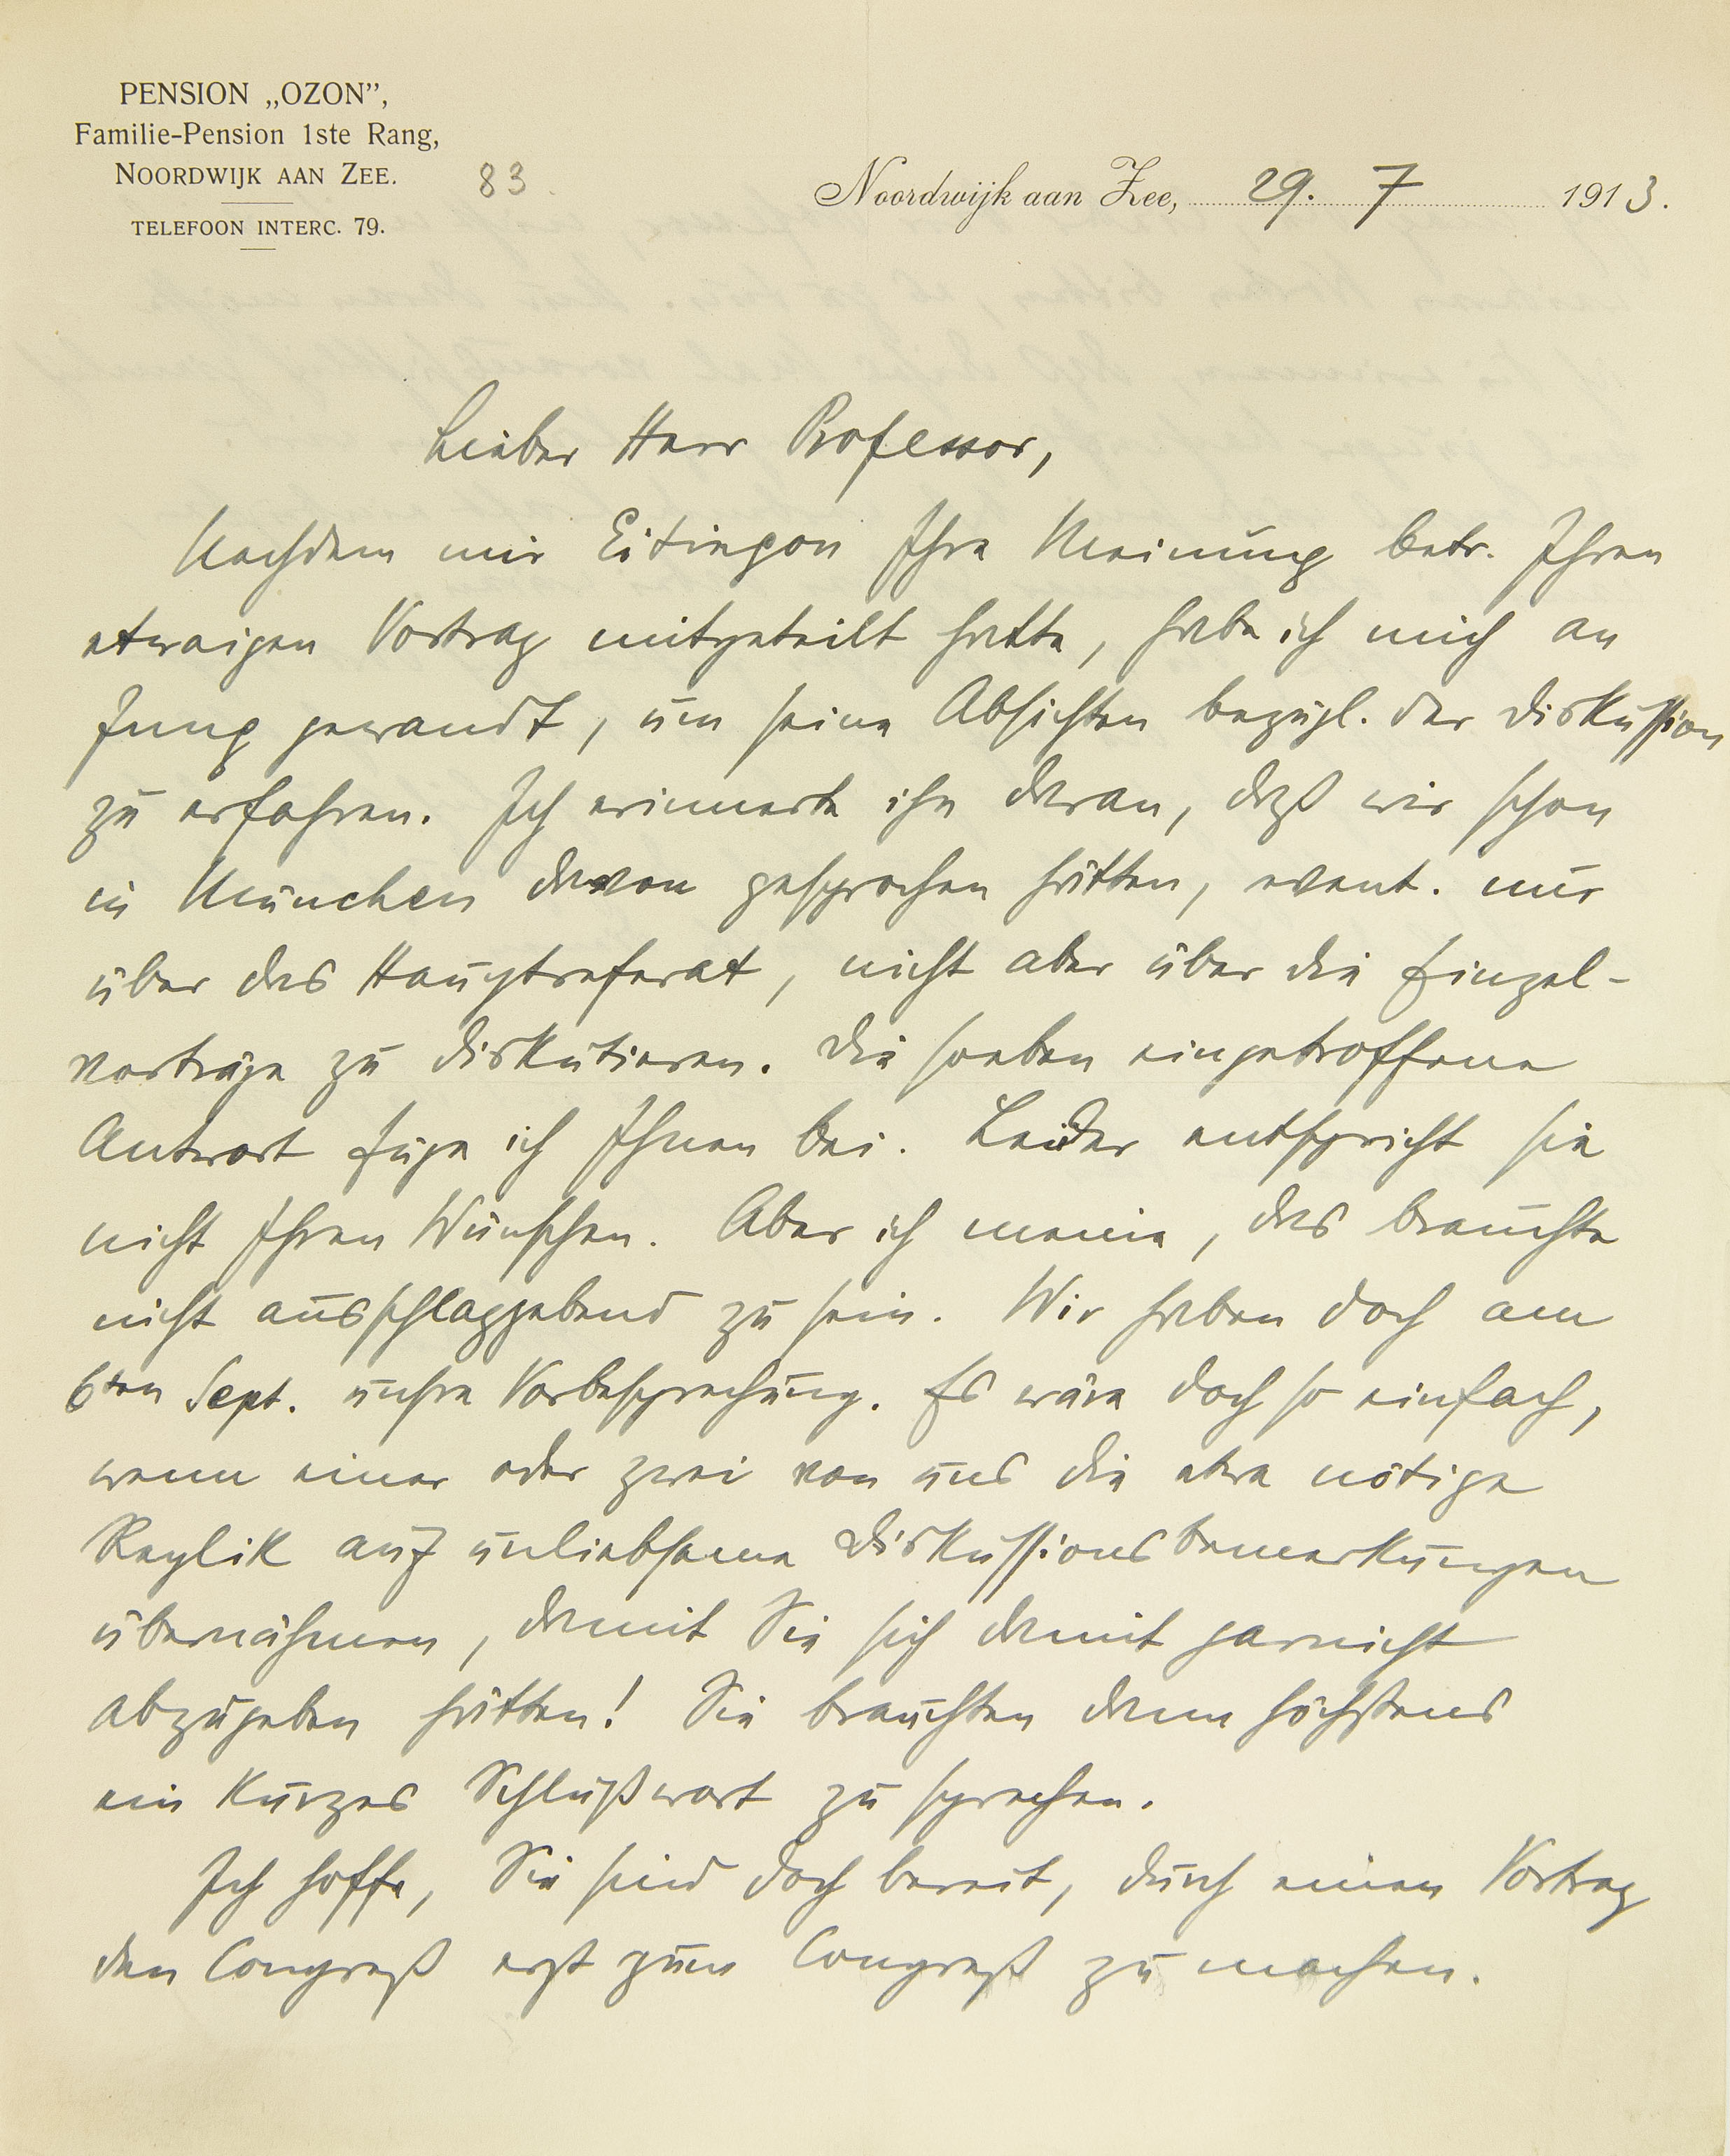 PENSION „OZON”,
Familie-Pension 1ste Rang,
NOORDWIJK AAN ZEE.
TELEFOON INTERC. 79.
83.
Noordwijk aan Zee, 29. 7 1913.
Lieber Herr Professor,
Nachdem mir Eitingon Ihre Meinung betr. Ihren
etwaigen Vortrag mitgeteilt hatte, habe ich mich an
Jung gewandt, um seine Absichten bezügl. der Diskussion
zu erfahren. Ich erinnerte ihn daran, daß wir schon
in München davon gesprochen hätten, event. nur
über das Hauptreferat, nicht aber über die Einzel-
vorträge zu diskutieren. Die soeben eingetroffene
Antwort füge ich Ihnen bei. Leider entspricht sie
nicht Ihren Wünschen. Aber ich meine, das brauchte
nicht ausschlaggebend zu sein. Wir haben doch am
6ten Sept. unsre Vorbesprechung. Es wäre doch so einfach,
wenn einer oder zwei von uns die etwa nötige
Replik auf unliebsame Diskussionsbemerkungen
übernähmen, damit Sie sich damit garnicht
abzugeben hätten! Sie brauchten dann höchstens
ein kurzes Schlußwort zu sprechen.
Ich hoffe, Sie sind doch bereit, durch einen Vortrag
den Congreß erst zum Congreß zu machen.